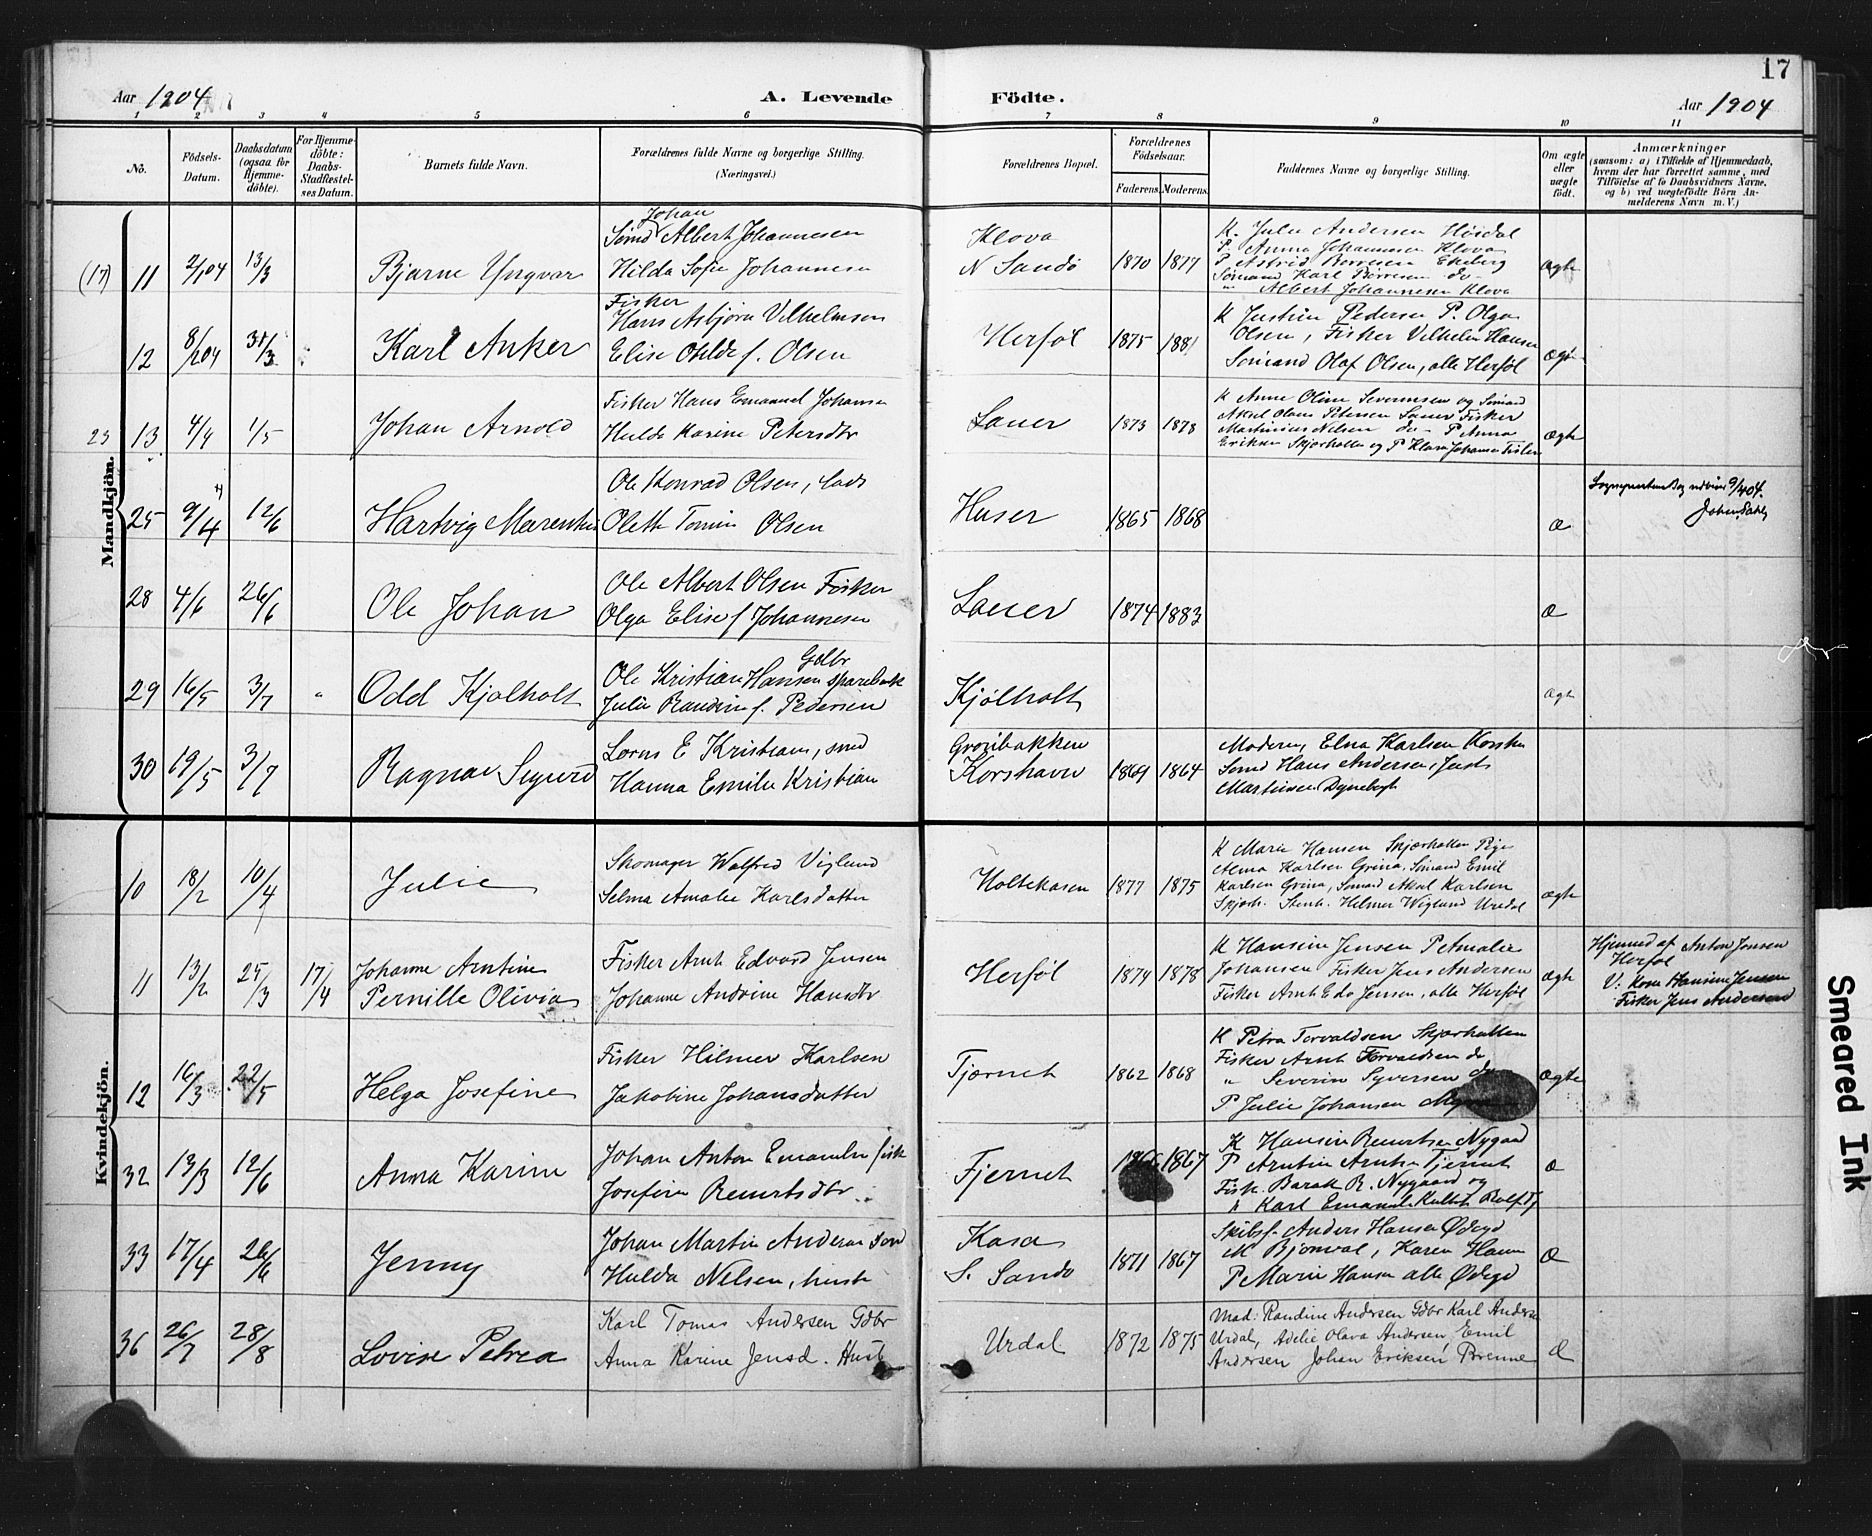 17
Aar 1904
A. Levende Födte.
Aar 1904
1 2 3 4 5 6 7 8 9 10 11
No.
Födsels-Datum.
Daabsdatum (ogsaa for Hjemmedöbte).
For Hjemmedöbte: Daabs-Stadfæstelses Datum.
Barnets fulde Navn.
Forældrenes fulde Navne og borgerlige Stilling.
(Næringsvei.)
Forældrenes Bopæl.
Forældrenes Födselsaar.
Faderens. Moderens.
Faddernes Navne og borgerlige Stilling.
Om ægte eller uægte födt.
Anmærkninger
(saasom: a) i Tilfælde af Hjemmedaab, hvem der har forrettet samme, med Tilföielse af to Daabsvidners Navne, og b) ved uægtefödte Börn Anmelderens Navn m. V.)
Mandkjön.
(17) 11 2/1 04 13/3 Bjarne Yngvar
Johan
Sömd Albert Johannesen
Hilda Sofie Johannesen
Klova
N Sandö
1870 1877
K. Julie Andersen Hösdal
P. Anna Johannesen Klova
P. Astrid Börresen Ekeberg
Sömand Karl Börresen do
" Albert Johannesen Klova
ægte
12 8/1 04 Karl Anker
Fisker
Hans Asbjörn Vilhelmsen
Elise Otilde f. Olsen
Herföl
1875 1881
K Justine Pedersen P. Olga
Olsen, Fisker Vilhelm Hansen
Sömand Olaf Olsen, alle Herföl
ægte
23 13 4/4 1/5 Johan Arnold
Fisker Hans Emanuel Johansen
Hulda Karine Petersdtr
Lauer
1873 1878
K Anne Oline Severinsen og Sömand
Aksel Olaus Petersen Lauer Fisker
Martinius Nelsen do - P Anna
Eriksen Skjærhalle og P Klara Johansen Fisker
ægte
25 9/4 12/6 Hartvig Marentius
Ole Konrad Olsen, Lods
Olette Tomine Olsen
Huser
1865 1868
æ
28 4/6 26/6 Ole Johan
Ole Albert Olsen Fisker
Olga Elise f Johannesen
Lauer
1874 1883
æ
29 16/5 3/7 " Odd Kjølholt
Gdbr
Ole Kristian Hansen sparebank
Julie Randine f. Pedersen
Kjølholt
ægte
30 19/5 3/7 Ragnar Sigurd
Lorns E Kristians, smd
Hanna Emilie Kristian
Grönbakken
Korshavn
1869 1864
Moderen, Elna Karlsen Korsh
Sömd Hans Andersen, Just
Martinsen Dynebergt
Kvindekjön.
10 18/2 10/4 Julie
Skomager Walfred Viglund
Selma Amalie Karlsdatter
Holtekasen
1877 1875
K Marie Hansen Skjærhallen Pige
Alma Karlsen Grina, Sömand Emil
Karlsen Grina, Sömand Aksel Karlsen
Skjærh. Stenh. Helmer Wiglund Urdal
ægte
11 13/2 25/3 17/4 Johanne Arntine
Pernille Olivia
Fisker Arnt Edvard Jensen
Johanne Andrine Hansdtr
Herföl
1874 1878
K Hansine Jensen P Amalie
Johansen Fisker Jens Andersen
Fisker Arnt Edv Jensen, alle Herföl
ægte
Hjemmed af Anton Jensen
Herföl
V: Kone Hansine Jensen
Fisker Jens Andersen
12 16/3 22/5 Helga Josefine
Fisker Hilmer Karlsen
Jakobine Johansdatter
Tjærnet
1862 1868
K Petra Torvaldsen Skjærhallen
Fisker Arnt Torvaldsen do
" Severin Syversen do
P Julie Johansen
ægte
32 13/3 12/6 Anna Karine
Johan Anton Emanelsen fisk
Josefine Reiertsdtr
Fjernet
1867
K Hansine Reiertsen Nygaard
P Arntine Arntsen Tjernet
Fisk. Barak R. Nygaard og
" Karl Emanuels
æ
33 17/4 26/6 Jenny
Johan Martin Andersen Smd
Hulda Nelsen, hust
Kasa
S. Sandö
1871 1867
Skibsf. Anders Hansen Ødegd
M Bjönval, Karen Hansen
P Marie Hansen alle Ødegd
æ
36 26/7 28/8 Lovise Petrea
Karl Tomas Andersen Gdbr
Anna Karine Jensd. Hust
Urdal
1872 1875
Mad: Randine Andersen Gdbr Karl Andersen
Urdal, Adelie Olava Andersen, Emil
Andersen Johan Eriksen, Brenne
æ
Smeared Ink